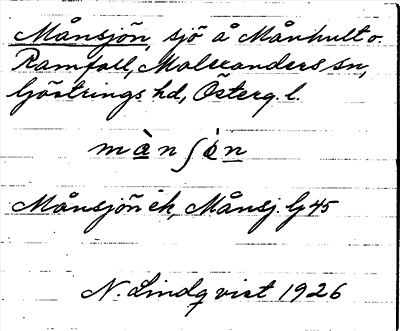 Månsjön, sjö å Månhult o.
Ramfall, Malexanders sn,
Göstrings hd, Österg. l.
mà̲nʃò̲n̲
Månsjön ek, Månsj. G 45
N. Lindqvist 1926